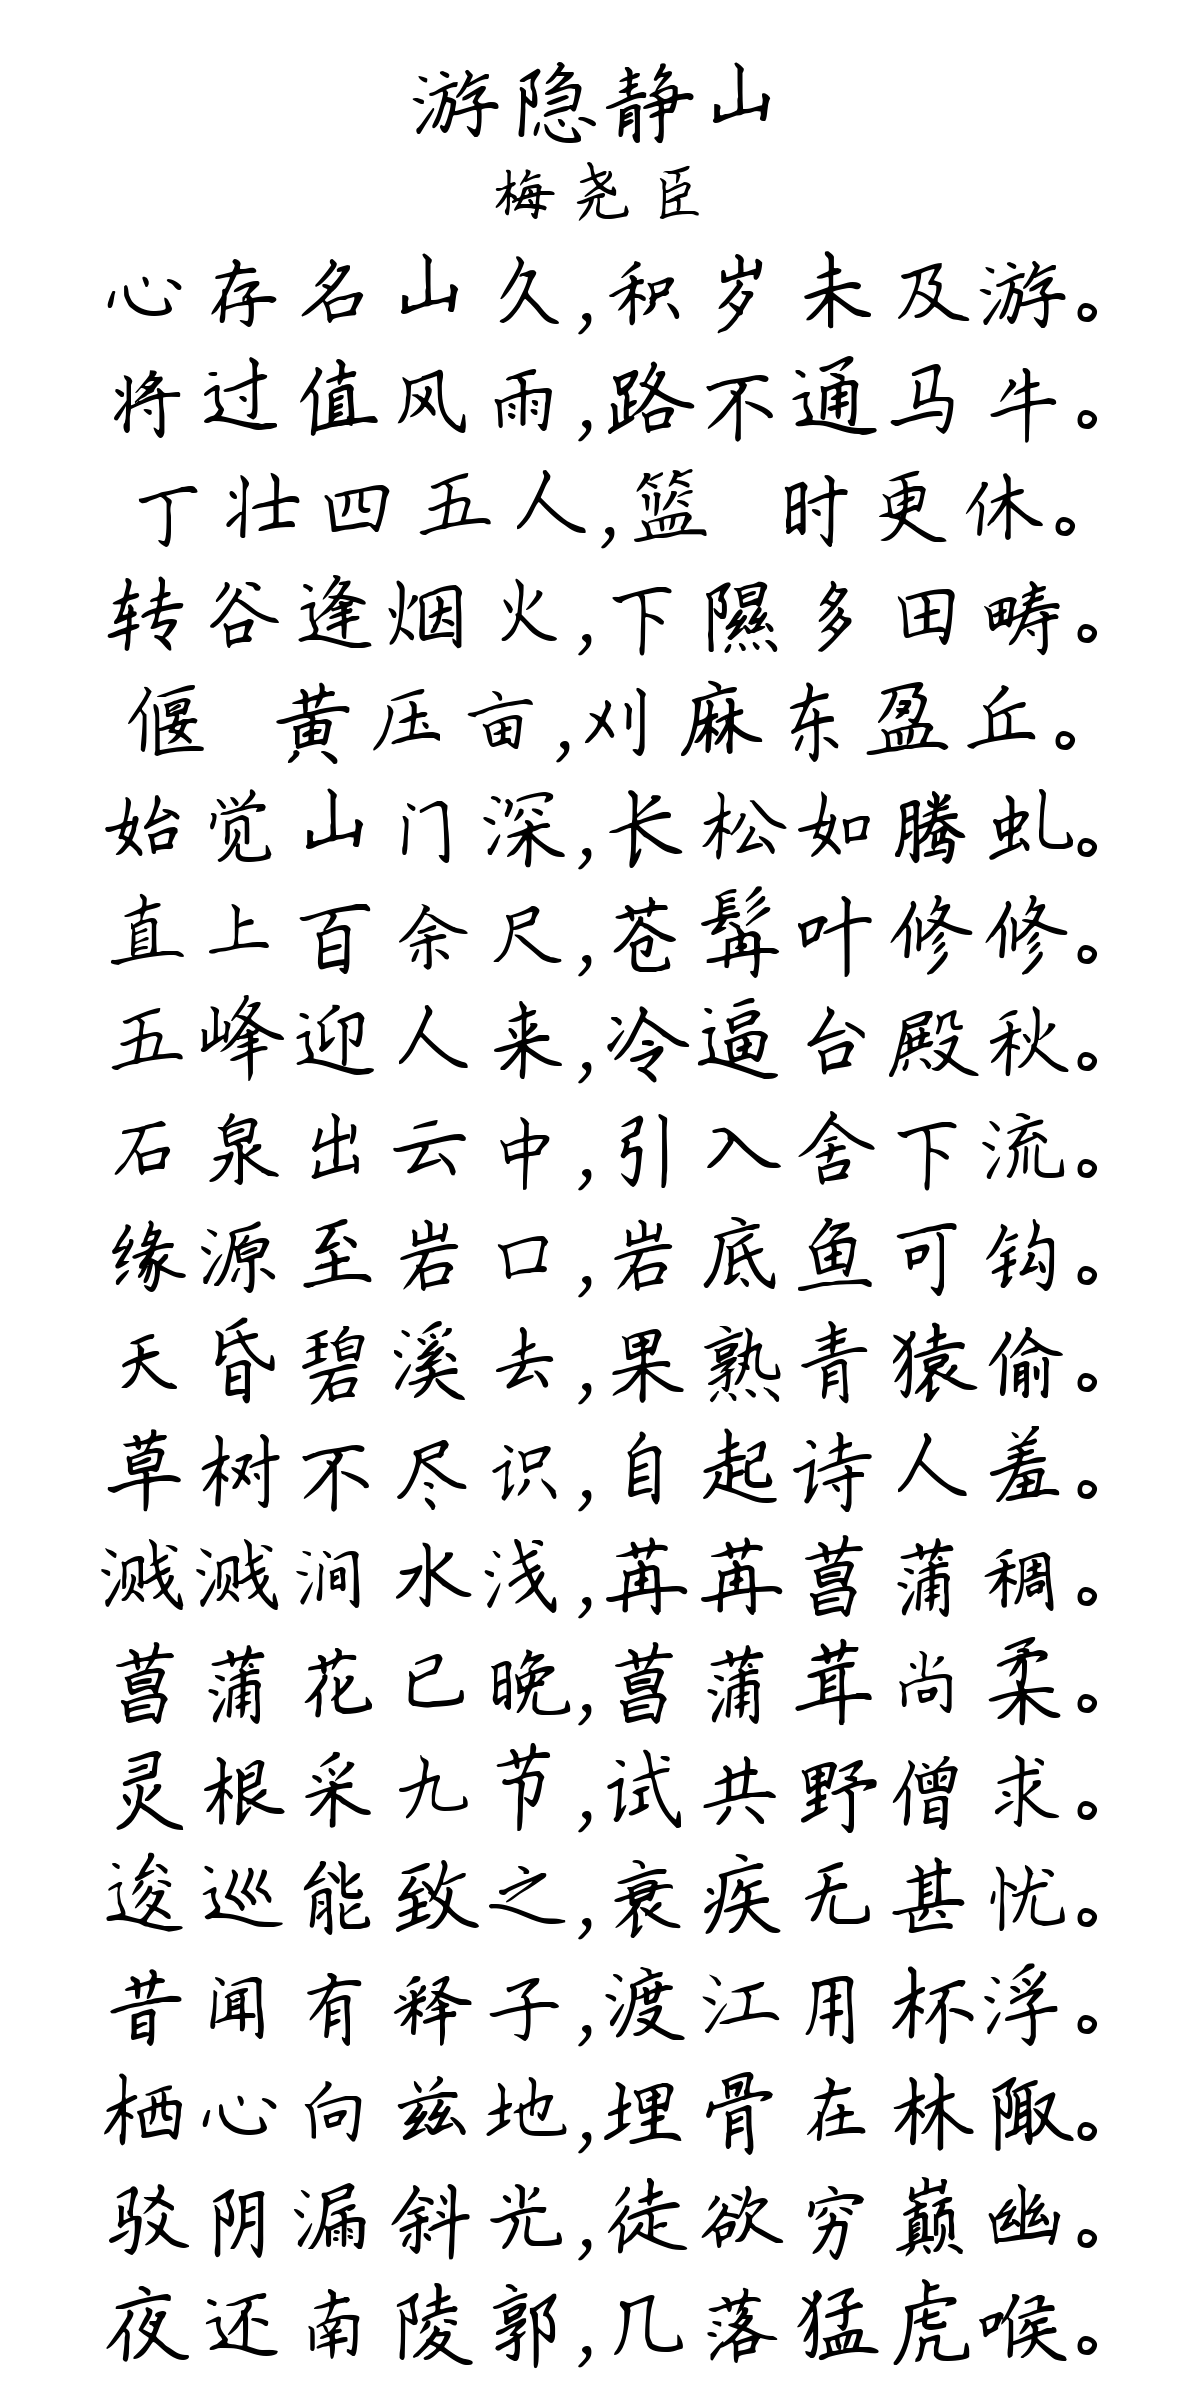 游隐静山
梅尧臣
心存名山久,积岁未及游。
将过值风雨,路不通马牛。
丁壮四五人,篮 时更休。
转谷逢烟火,下隰多田畴。
偃 黄压亩,刈麻东盈丘。
始觉山门深,长松如腾虬。
直上百余尺,苍髯叶修修。
五峰迎人来,冷逼台殿秋。
石泉出云中,引入舍下流。
缘源至岩口,岩底鱼可钩。
天昏碧溪去,果熟青猿偷。
草树不尽识,自起诗人羞。
溅溅涧水浅,苒苒菖蒲稠。
菖蒲花已晚,菖蒲茸尚柔。
灵根采九节,试共野僧求。
逡巡能致之,衰疾无甚忧。
昔闻有释子,渡江用杯浮。
栖心向兹地,埋骨在林陬。
驳阴漏斜光,徒欲穷巅幽。
夜还南陵郭,几落猛虎喉。